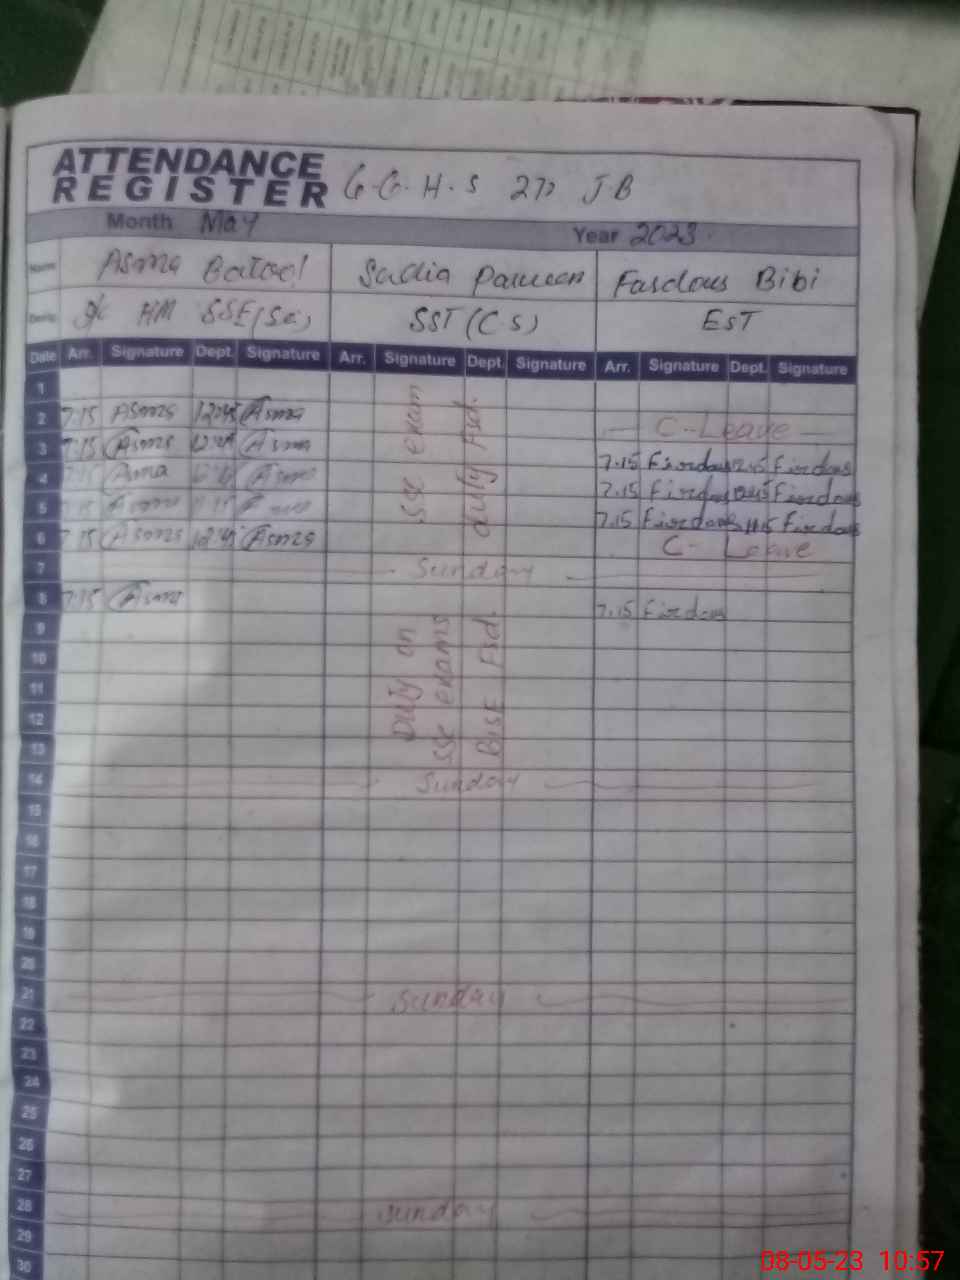 ATTENDANCE
REGISTER G.G.H.S 277 JB
Month May Year 2023
Name Asma Batool Sadia Parveen Fasdous Bibi
Desig: I/C HM SSE(Sc) SST (CS) EST
Date Arr. Signature Dept. Signature Arr. Signature Dept. Signature Arr. Signature Dept. Signature
SSC exam
duty Fsd.
1
2 7:15 Asma 12:45 Asma C-Leave
3 7:15 Asma 12:45 Asma 7.15 Firdous Firdous
4 7:15 Asma Asma 7.15 Firdous 12:45 Firdous
5 7:15 Asma Asma 7.15 Firdous 11.15 Firdous
6 7:15 Asma 12:45 Asma C- Leave
7 Sunday
8 7:15 Asma 7.15 Firdous
Duty on
SSC exams
BISE Fsd.
9
10
11
12
13
14 Sunday
15
16
17
18
19
20
21 Sunday
22
23
24
25
26
27
28 Sunday
29
30
08-05-23 10:57